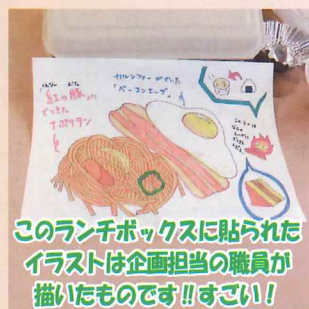 「紅の豚」に
でてきた
ナポリタン
カルシファーがやいた
「ベーコンエッグ」
このランチボックスに貼られた
イラストは企画担当の職員が
描いたものです!!すごい!